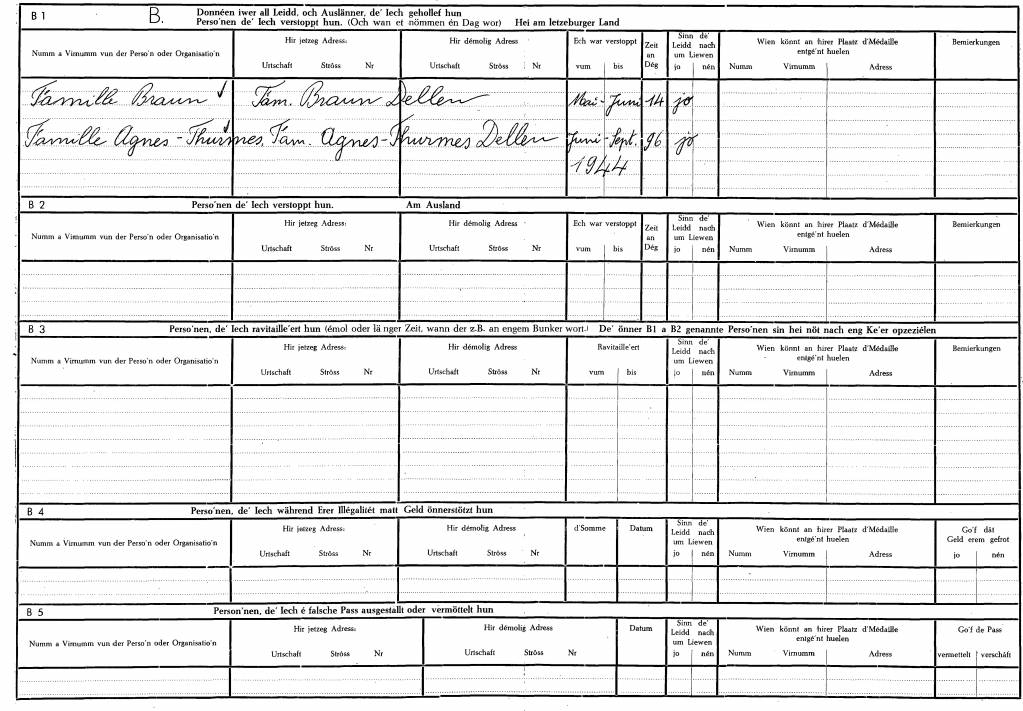 B 1 B. Donnéen iwer all Leidd, och Auslänner, de' Iech gehollef hun
Perso'nen de' Iech verstoppt hun. (Och wan et nömmen én Dag wor) Hei am letzeburger Land
Numm a Virnumm vun der Perso'n oder Organisatio'n Hir jetzeg Adress: Hir démolig Adress Ech war verstoppt Zeit an Dég Sinn de' Leidd nach um Liewen Wien könnt an hirer Plaatz d'Médaille entgé'nt huelen Bemierkungen
Urtschaft Ströss Nr Urtschaft Ströss Nr vum bis jo nén Numm Virnumm Adress
Famille Braun Fam. Braun Dellen Mai - Juni 14 jo
Famille Agnes - Thurmes, Fam. Agnes - Thurmes Dellen Juni - Sept. 96 jo
1944
B 2 Perso'nen de' Iech verstoppt hun. Am Ausland
Numm a Virnumm vun der Perso'n oder Organisatio'n Hir jetzeg Adress: Hir démolig Adress Ech war verstoppt Zeit an Dég Sinn de' Leidd nach um Liewen Wien könnt an hirer Plaatz d'Médaille entgé'nt huelen Bemierkungen
Urtschaft Ströss Nr Urtschaft Ströss Nr vum bis jo nén Numm Virnumm Adress
B 3 Perso'nen, de' Iech ravitaille'ert hun (émol oder länger Zeit, wann der z.B. an engem Bunker wort.) De' önner B1 a B2 genannte Perso'nen sin hei nöt nach eng Ke'er opzeziélen
Numm a Virnumm vun der Perso'n oder Organisatio'n Hir jetzeg Adress: Hir démolig Adress Ravitaille'ert Sinn de' Leidd nach um Liewen Wien könnt an hirer Plaatz d'Médaille entgé'nt huelen Bemierkungen
Urtschaft Ströss Nr Urtschaft Ströss Nr vum bis jo nén Numm Virnumm Adress
B 4 Perso'nen, de' Iech während Erer Illégalitét matt Geld önnerstötzt hun
Numm a Virnumm vun der Perso'n oder Organisatio'n Hir jetzeg Adress: Hir démolig Adress d'Somme Datum Sinn de' Leidd nach um Liewen Wien könnt an hirer Plaatz d'Médaille entgé'nt huelen Go'f dát Geld erem gefrot
Urtschaft Ströss Nr Urtschaft Ströss Nr jo nén Numm Virnumm Adress jo nén
B 5 Person'nen, de' Iech é falsche Pass ausgestallt oder vermöttelt hun
Numm a Virnumm vun der Perso'n oder Organisatio'n Hir jetzeg Adress: Hir démolig Adress Datum Sinn de' Leidd nach um Liewen Wien könnt an hirer Plaatz d'Médaille entgé'nt huelen Go'f de Pass
Urtschaft Ströss Nr Urtschaft Ströss Nr jo nén Numm Virnumm Adress vermettelt verschäft